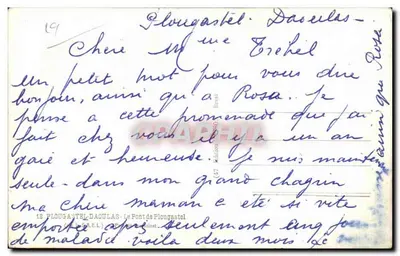 19
Plougastel-Daoulas-
Chère Mme Trehel
Un petit mot pour vous dire
bonjour, ainsi qu'a Rosa. Je
pense a cette promenade que j'ai
fait chez vous il y a un an
gaie et heureuse. Je suis
seule - dans mon grand chagrin
ma chère maman a été si vite
12 PLOUGASTEL-DAOULAS - Le Pont de Plougastel
emportée après seulement cinq jours
de maladie voila deux mois
ainsi que Rosa